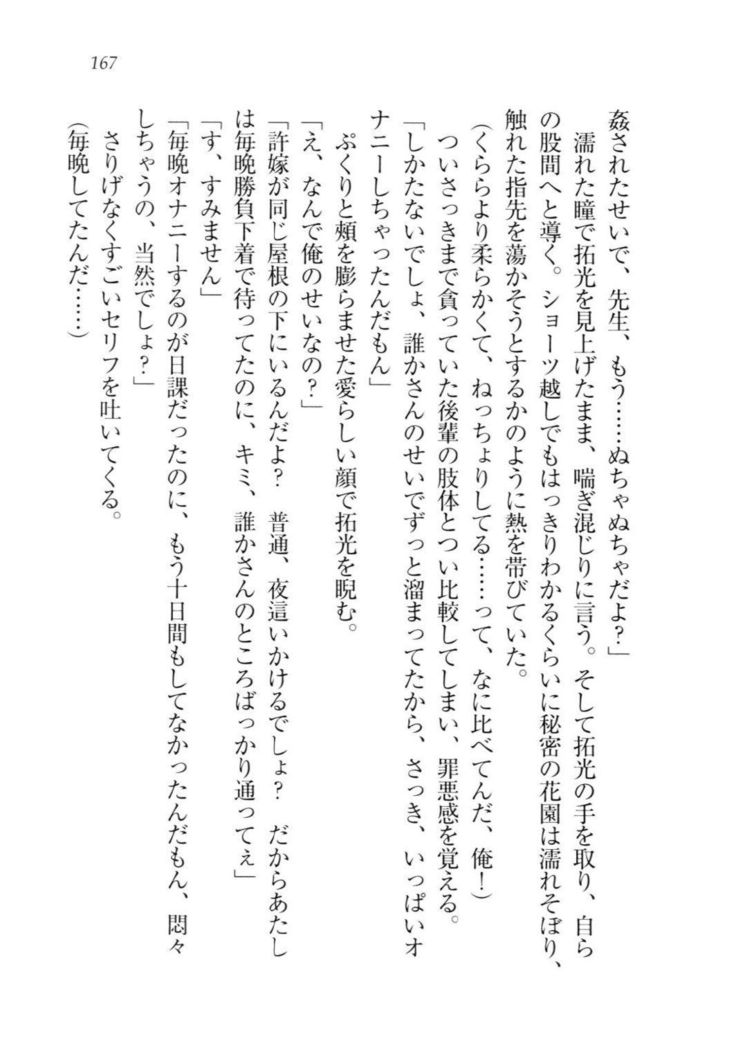 167
姦されたせいで、先生、もう……ぬちゃぬちゃだよ？」
濡れた瞳で拓光を見上げたまま、喘ぎ混じりに言う。そして拓光の手を取り、自ら
の股間へと導く。ショーツ越しでもはっきりわかるくらいに秘密の花園は濡れそぼり、
触れた指先を蕩かそうとするかのように熱を帯びていた。
（くららより柔らかくて、ねっちょりしてる……って、なに比べてんだ、俺！）
ついさっきまで貪っていた後輩の肢体とつい比較してしまい、罪悪感を覚える。
「しかたないでしょ、誰かさんのせいでずっと溜まってたから、さっき、いっぱいオ
ナニーしちゃったんだもん」
ぷくりと頬を膨らませた愛らしい顔で拓光を睨む。
「え、なんで俺のせいなの？」
「許嫁が同じ屋根の下にいるんだよ？　普通、夜這いかけるでしょ？　だからあたし
は毎晩勝負下着で待ってたのに、キミ、誰かさんのところばっかり通ってぇ」
「す、すみません」
「毎晩オナニーするのが日課だったのに、もう十日間もしてなかったんだもん、悶々
しちゃうの、当然でしょ？」
さりげなくすごいセリフを吐いてくる。
（毎晩してたんだ……）